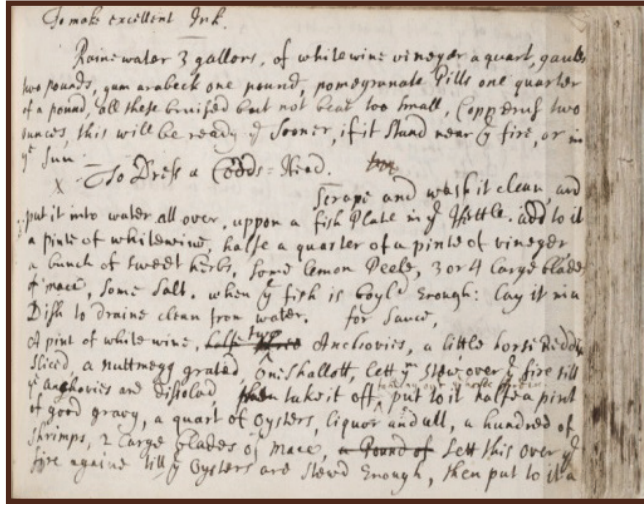 To make excellent Ink.
Raine water 3 gallors, of white wine vinegar a quart, gaules
two pounds, gum arabeck one pound, pomegranate Pills one quarter
of a pound, all these bruised but not beat too small, Copperus two
ounces, this will be ready ye Sooner, if it Stand near ye fire, or in
ye Sun.
X To Dress a Codds-Head.
Scrape and wash it clean, and
put it into water all over, uppon a fish Plate in ye Kettle. add to it
a pinte of whitewine, halfe a quarter of a pinte of vineger
a bunch of sweet herbs, some lemon Peele, 3 or 4 large blades
of mace, some salt. when ye fish is boyld Enough: Lay it in a
Dish to draine clean from water. for Sauce,
A pint of white wine, halfe two three Anchovies, a little horse Reddish
sliced, a nuttmegg grated, one shallott, lett ym stew over ye fire till
ye anchovies are dissolvd, then take it off, put to it halfe a pint
of good gravy, a quart of oysters, liquor and all, a hundred of
shrimps, 2 large blades of mace, a Pound of Lett this over ye
fire againe till ye oysters are stewd Enough, then put to it a